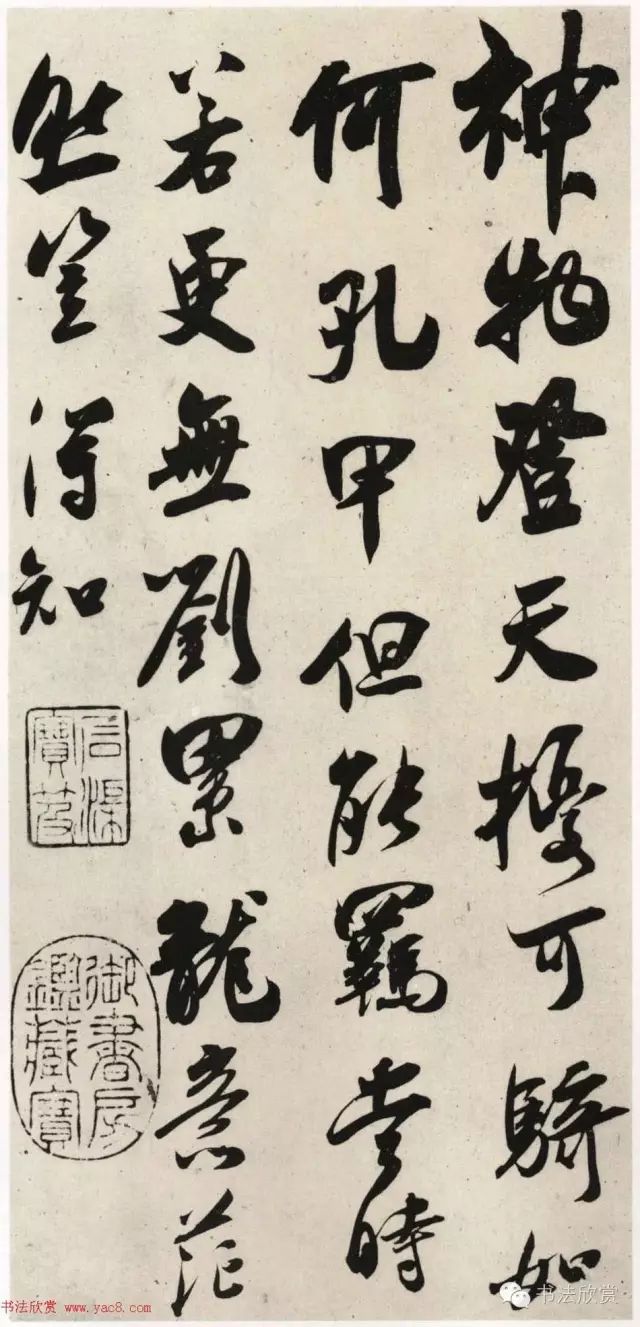 神物登天擾可騎如
何孔甲但能羈當時
若更無劉累龍意茫
然豈得知
石渠
寶笈
御書房
鑑藏寶
书法欣赏 www.yac8.com
书法欣赏